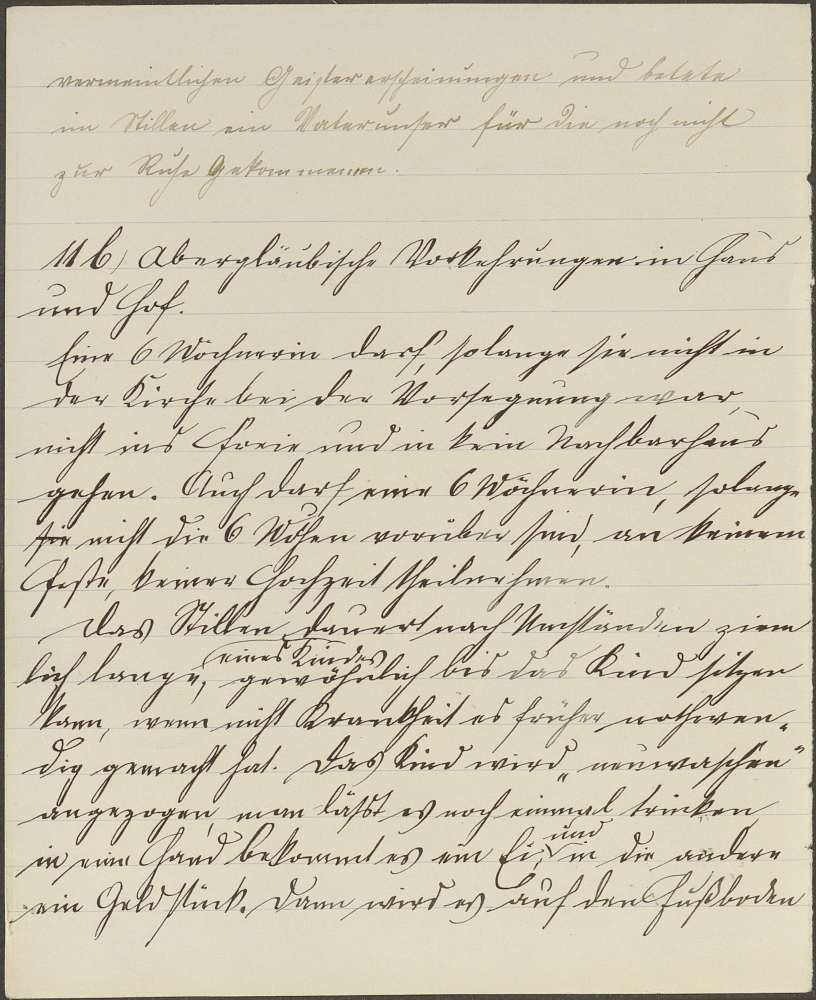 vermeintlichen Geistererscheinungen und betete
im Stillen ein Vaterunser für die noch nicht
zur Ruhe Gekommenen.
11 b) Abergläubische Vorkehrungen in Haus
und Hof.
Eine 6 Wöchnerin darf, solange sie nicht in
der Kirche bei der Vorsegnung war,
nicht ins Freie und in kein Nachbarhaus
gehen. Auch darf eine 6 Wöchnerin, solange
sie nicht die 6 Wochen vorüber sind, an keinem
Feste, keiner Hochzeit theilnehmen.
Das Stillen dauert nach Umständen ziem
eines Kindes
lich lange, gewöhnlich bis das Kind sitzen
kann, wenn nicht Krankheit es früher nothwen-
dig gemacht hat. Das Kind wird „neuwaschen"
angezogen, man läßt es noch einmal trinken,
und
in eine Hand bekommt es ein Ei, in die andere
ein Geldstück. Dann wird es auf den Fußboden